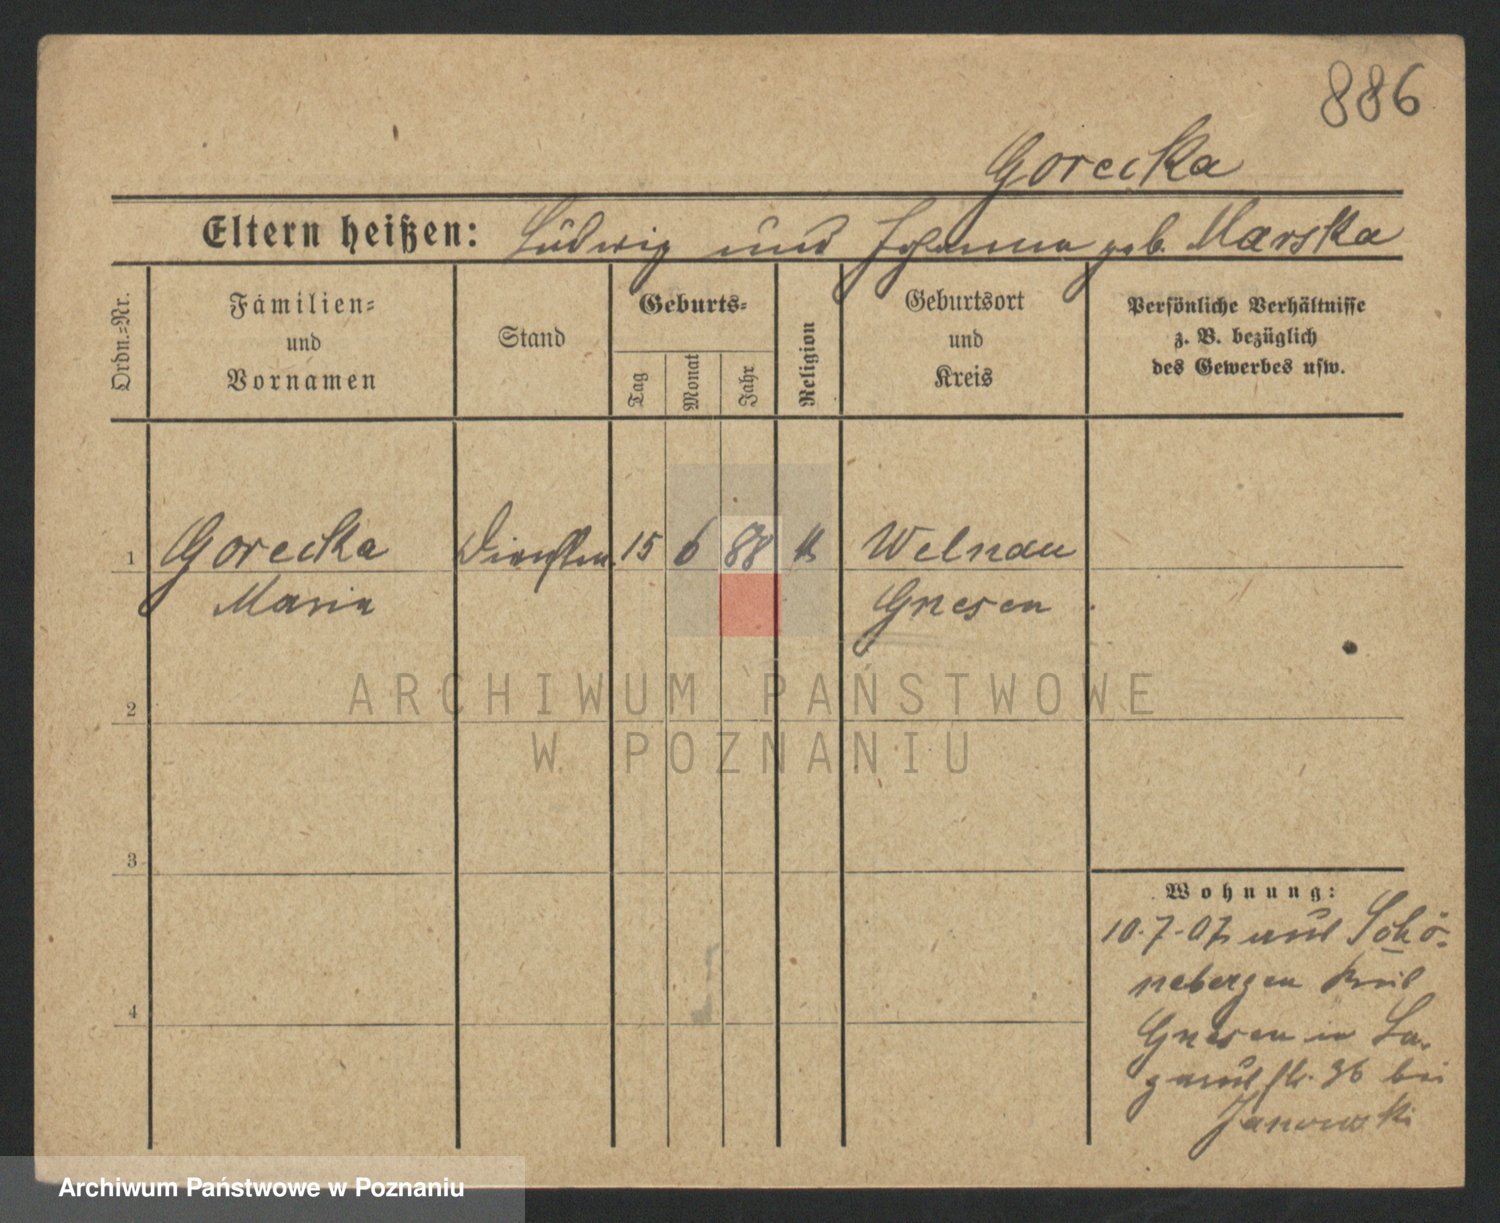 886
Gorecka
Eltern heißen: Ludwig und Johanna geb. Marska
Ordn.=Nr.
Familien=
und
Vornamen
Stand
Geburts=
Tag
Monat
Jahr
Religion
Geburtsort
und
Kreis
Persönliche Verhältnisse
z. B. bezüglich
des Gewerbes usw.
1 Gorecka 15 6 88 k Welnau
Maria Gnesen
2
3
4
Wohnung:
10.7.07 aus Schö-
nebergen Kreis
Gnesen in La-
str. 36 bei
Janowski
ARCHIWUM PAŃSTWOWE
W POZNANIU
Archiwum Państwowe w Poznaniu